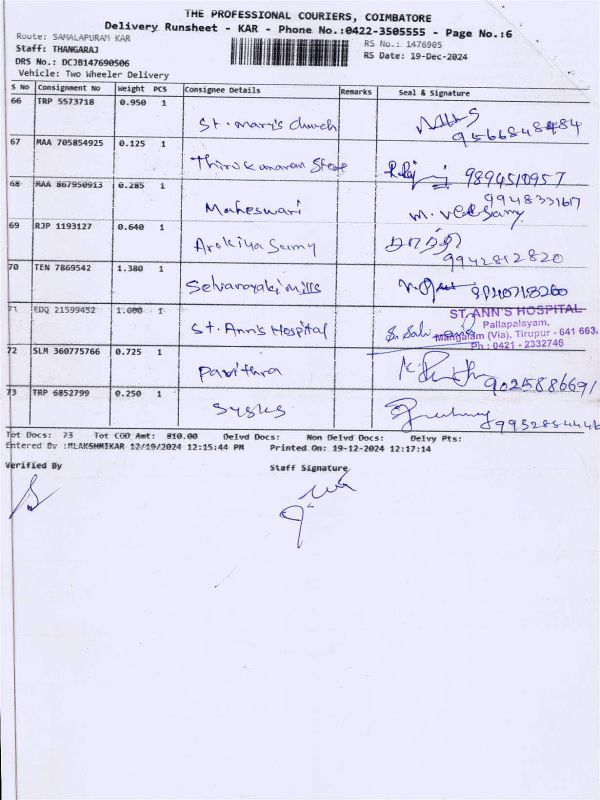 THE PROFESSIONAL COURIERS, COIMBATORE
Delivery Runsheet - KAR - Phone No.:0422-3505555 - Page No.:6
Route: SAMALAPURAM KAR
RS No.: 1476905
Staff: THANGARAJ
RS Date: 19-Dec-2024
DRS No.: DCJB147690506
Vehicle: Two Wheeler Delivery
S No Consignment No Weight PCS Consignee Details Remarks Seal & Signature
66 TRP 5573718 0.950 1
St. mary's church
9566848484
67 MAA 705854925 0.125 1
Thirukumaran Store
9894510957
68 MAA 867950913 0.285 1
9948331617
Maheswari
69 RJP 1193127 0.640 1
Arokiya Samy
9942812820
70 TEN 7869542 1.380 1
Selvanayaki mills
71 EDQ 21599452 1.000 1
ST. ANN'S HOSPITAL
Pallapalayam,
St. Ann's Hospital
Mangalam (Via), Tirupur - 641 663.
Ph : 0421 - 2332746
72 SLM 360775766 0.725 1
Pavithra
9025886691
73 TRP 6852799 0.250 1
Tot Docs: 73 Tot COD Amt: 810.00 Delvd Docs: Non Delvd Docs: Delvy Pts:
Entered By :MLAKSHMIKAR 12/19/2024 12:15:44 PM Printed On: 19-12-2024 12:17:14
Verified By Staff Signature